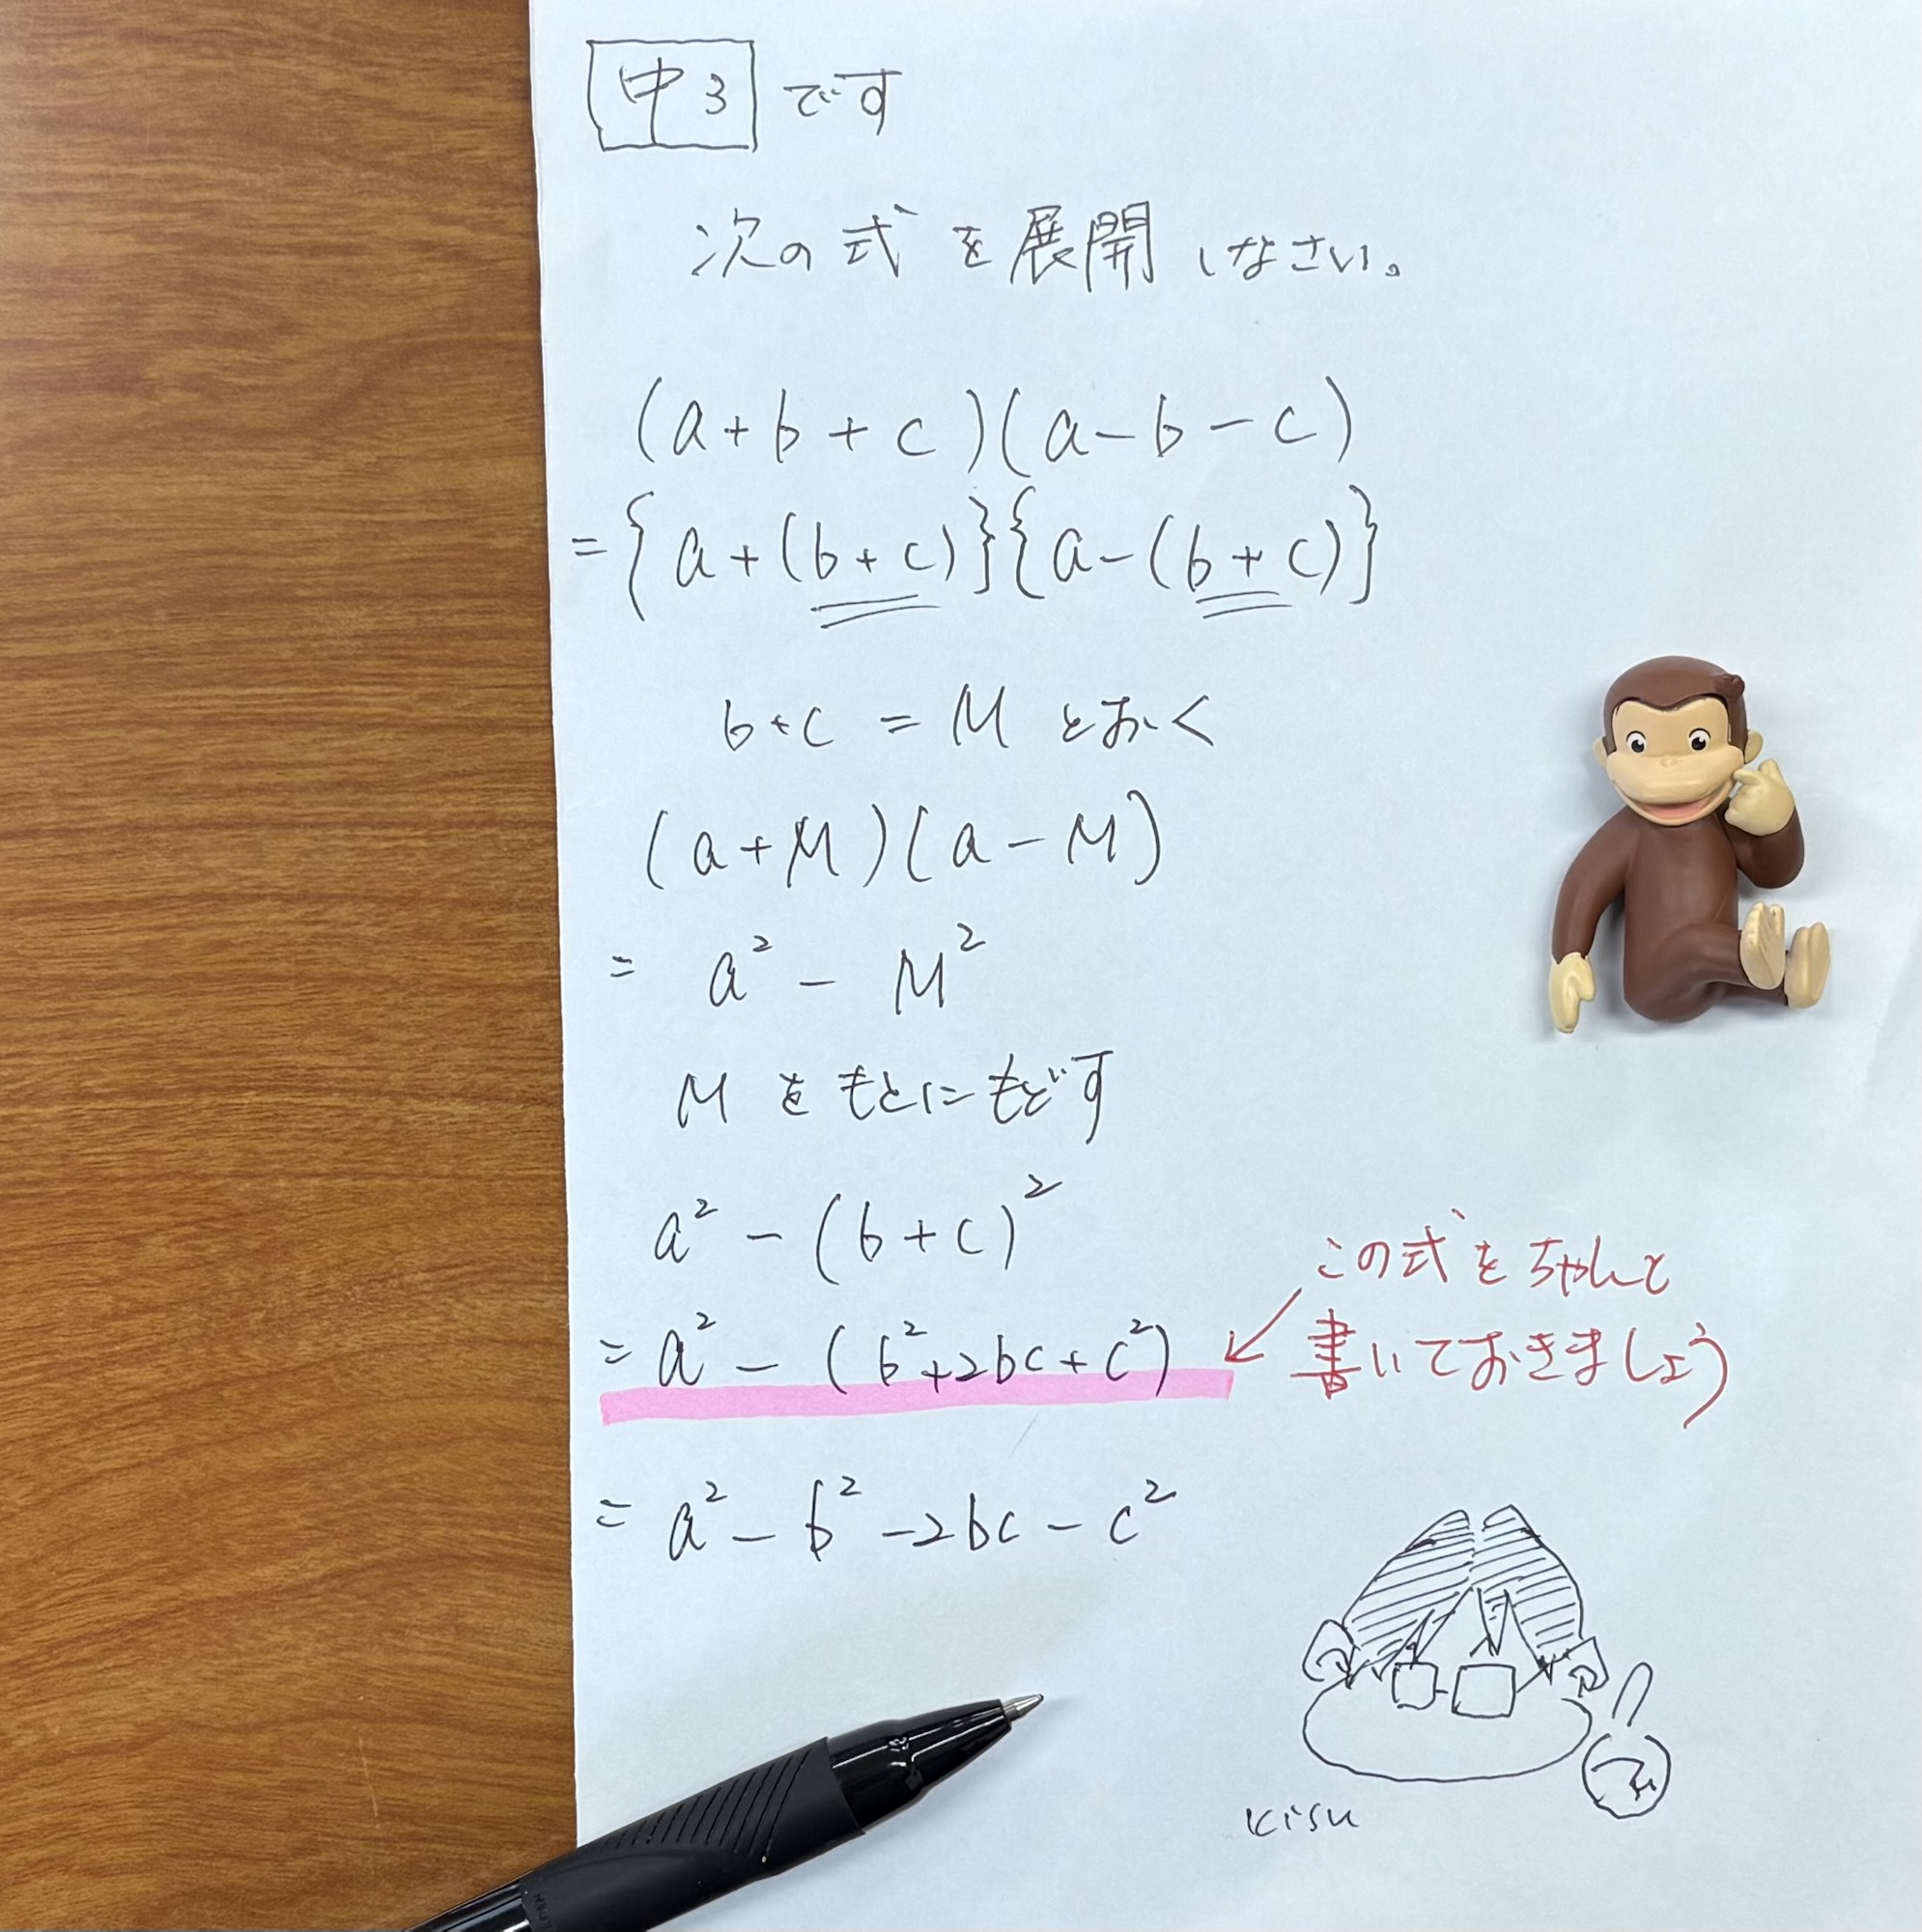 中3です
次の式を展開しなさい。
(a+b+c)(a-b-c)
={a+(b+c)}{a-(b+c)}
b+c=Mとおく
(a+M)(a-M)
=a²-M²
Mをもとにもどす
a²-(b+c)²
=a²-(b²+2bc+c²)
この式をちゃんと
書いておきましょう
=a²-b²-2bc-c²
kisu